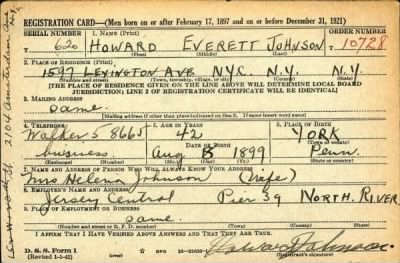 REGISTRATION CARD—(Men born on or after February 17, 1897 and on or before December 31, 1921)
SERIAL NUMBER 1. NAME (Print) ORDER NUMBER
620 HOWARD EVERETT JOHNSON 10728
(First) (Middle) (Last)
2. PLACE OF RESIDENCE (Print)
1597 LEXINGTON AVE N.Y.C. N.Y. N.Y.
(Number and street) (Town, township, village, or city) (County) (State)
[THE PLACE OF RESIDENCE GIVEN ON THE LINE ABOVE WILL DETERMINE LOCAL BOARD
JURISDICTION; LINE 2 OF REGISTRATION CERTIFICATE WILL BE IDENTICAL]
3. MAILING ADDRESS
same
[Mailing address if other than place indicated on line 2. If same, insert word same]
4. TELEPHONE 5. AGE IN YEARS 6. PLACE OF BIRTH
Walker 5 8665 42 YORK
DATE OF BIRTH (Town or county)
business Aug 8 1899 Penn.
(Exchange) (Number) (Mo.) (Day) (Yr.) (State or country)
7. NAME AND ADDRESS OF PERSON WHO WILL ALWAYS KNOW YOUR ADDRESS
Mrs Helena Johnson (wife)
8. EMPLOYER'S NAME AND ADDRESS
Jersey Central Pier 39 NORTH RIVER
9. PLACE OF EMPLOYMENT OR BUSINESS
same
(Number and street or R. F. D. number) (Town) (County) (State)
I AFFIRM THAT I HAVE VERIFIED ABOVE ANSWERS AND THAT THEY ARE TRUE.
D. S. S. Form 1 GPO
(Revised 1-1-42) Howard Johnson
(Registrant's signature)
2104 Amsterdam Ave